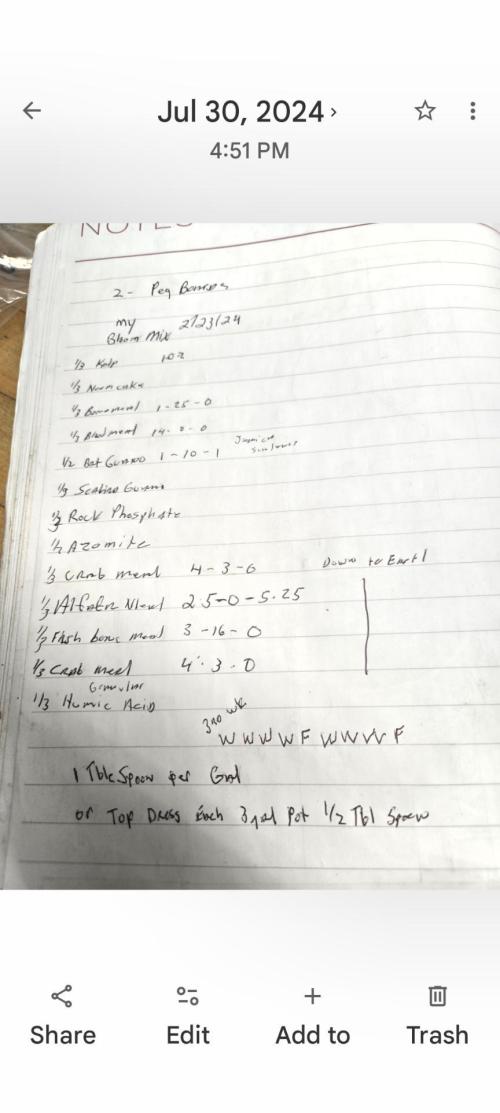 Jul 30, 2024 ›
4:51 PM
NOTES
2-
my 2/23/24
Bloom Mix
1/3 Kelp 10 2
1/3 Neem cake
1/3 Bone meal 1-25-0
1/3 Blood ment 14-0-0
1/2 Bat Guano 1-10-1 Jamican
1/3 Seabird Guano
1/3 Rock Phosphate
1/2 Azomite
1/3 Crab meal 4-3-6 Down to Earth
1/3 Alfalfa Meal 2.5-0-5.25
1/3 Fish bone meal 3-16-0
1/3 Crab meel 4.3.0
Granular
1/3 Humic Acid
3rd wk
W W W W F W W W W F
1 Tble Spoon per Gal
or Top Dress Each 3 gal Pot 1/2 Tbl Spoon
Share
Edit
Add to
Trash